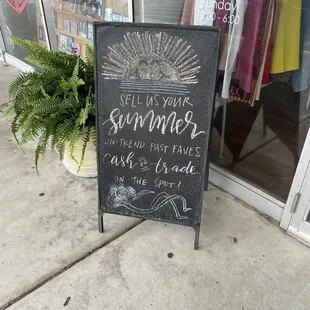 Sunday
00 - 6:00
SELL US YOUR
Summer
ON-TREND PAST FAVES
Cash or trade
ON THE SPOT!